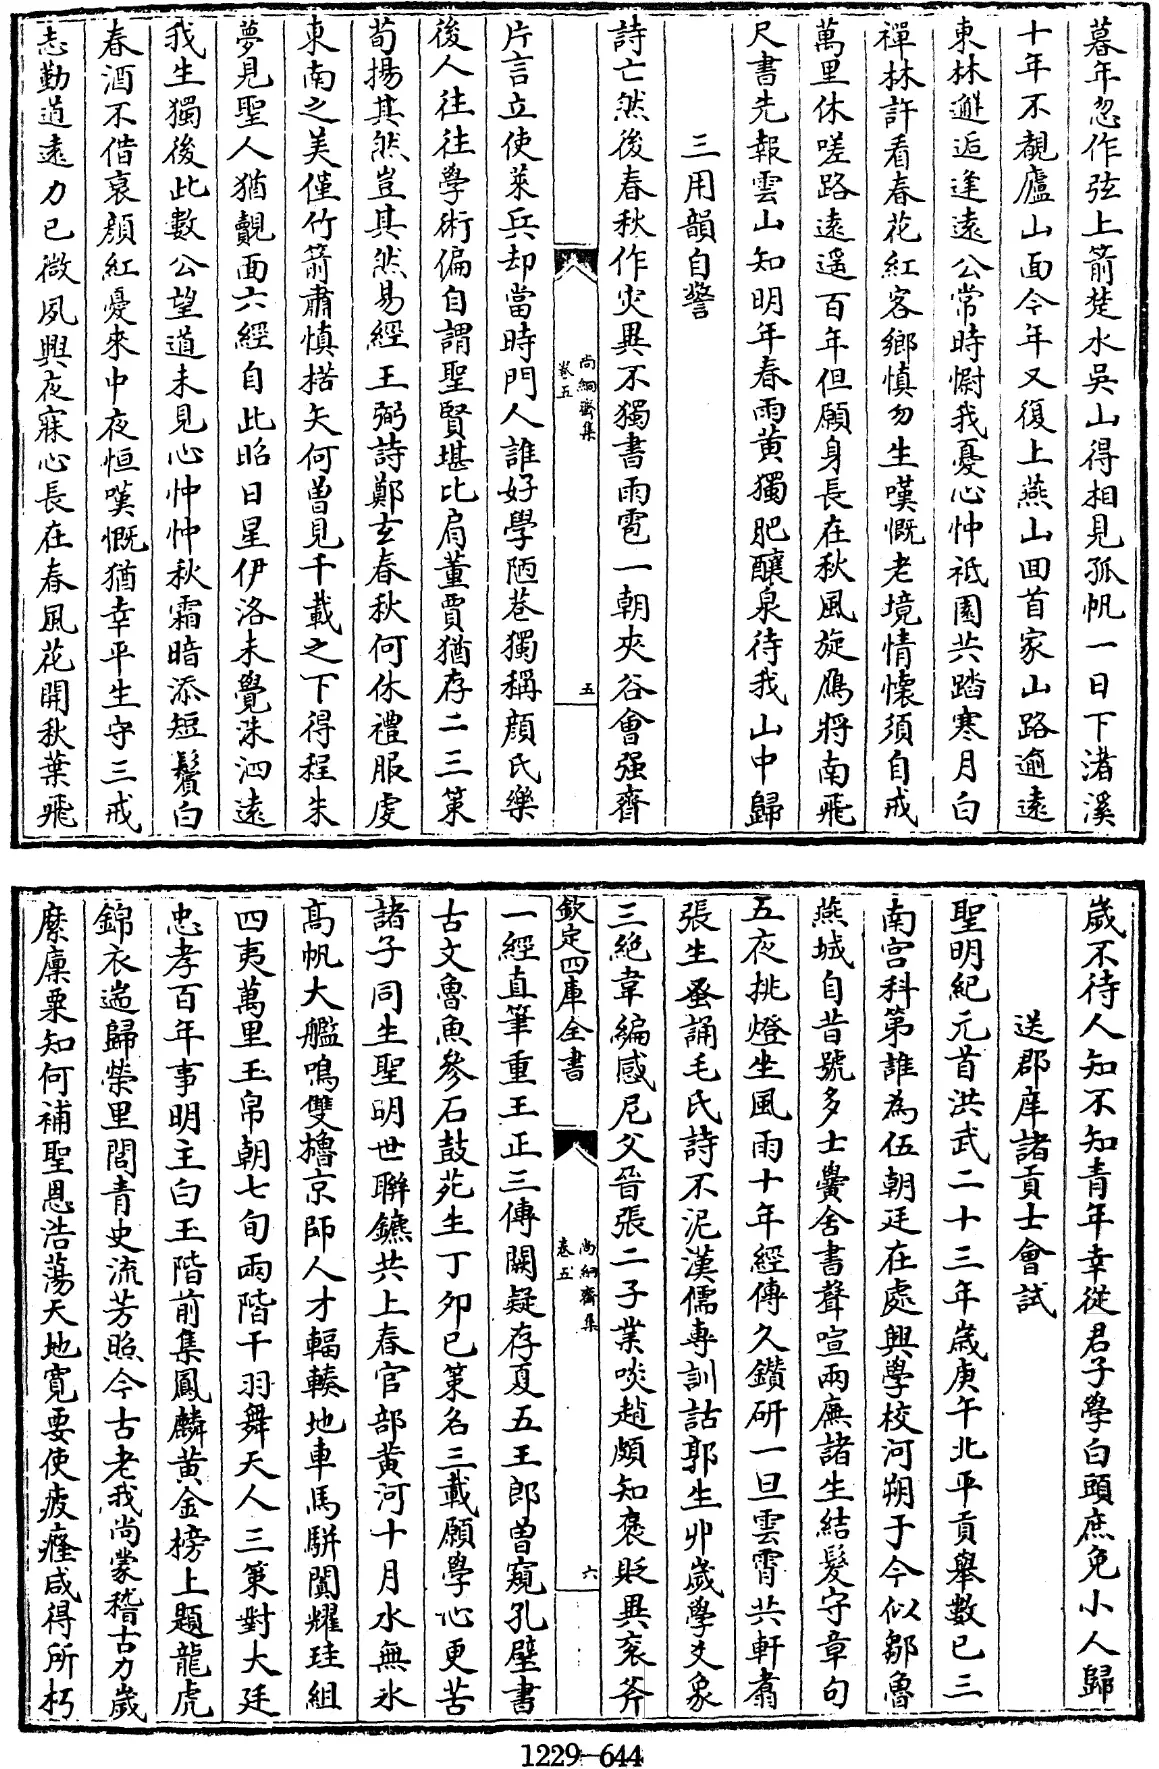 暮年忽作弦上箭楚水吳山得相見孤帆一日下渚溪
十年不覩廬山面今年又復上燕山回首家山路逾遠
東林邂逅逢遠公常時慰我憂心忡祗園共踏寒月白
禪林許看春花紅客鄉慎勿生嘆慨老境情懷須自戒
萬里休嗟路遠遥百年但願身長在秋風旋鴈將南飛
尺書先報雲山知明年春雨黄獨肥釀泉待我山中歸
三用韻自警
詩亡然後春秋作灾異不獨書雨雹一朝夾谷會强齊
尚絅齋集
卷五
五
片言立使萊兵却當時門人誰好學陋巷獨稱顔氏樂
後人往往學術偏自謂聖賢堪比肩董賈猶存二三策
荀揚其然豈其然易經王弼詩鄭玄春秋何休禮服虔
東南之美僅竹箭肅慎楛矢何曽見千載之下得程朱
夢見聖人猶覿面六經自此昭日星伊洛未覺洙泗遠
我生獨後此數公望道未見心忡忡秋霜暗添短鬢白
春酒不借衰顔紅憂來中夜恒嘆慨猶幸平生守三戒
志勤道逺力已微夙興夜寐心長在春風花開秋葉飛
歲不待人知不知青年幸從君子學白頭庶免小人歸
送郡庠諸貢士會試
聖明紀元首洪武二十三年歲庚午北平貢舉數已三
南宫科第誰為伍朝廷在處興學校河朔于今似鄒魯
燕城自昔號多士黌舍書聲喧兩廡諸生結髮守章句
五夜挑燈坐風雨十年經傳久鑽研一旦雲霄共軒翥
張生蚤誦毛氏詩不泥漢儒専訓詁郭生丱歲學爻象
三絶韋編感尼父晉張二子業啖趙頗知褒貶異衮斧
欽定四庫全書
尚絅齋集
卷五
六
一經直筆重王正三傳闕疑存夏五王郎曽窺孔壁書
古文魯魚參石鼓苑生丁卯已策名三載願學心更苦
諸子同生聖明世聯鑣共上春官部黄河十月水無氷
高帆大艦鳴雙櫓京師人才輻輳地車馬駢闐耀珪組
四夷萬里玉帛朝七旬兩階干羽舞天人三策對大廷
忠孝百年事明主白玉階前集鳳麟黄金榜上題龍虎
錦衣遄歸榮里閭青史流芳照今古老我尚蒙稽古力歲
縻廩粟知何補聖恩浩蕩天地寛要使疲癃咸得所朽
1229-644